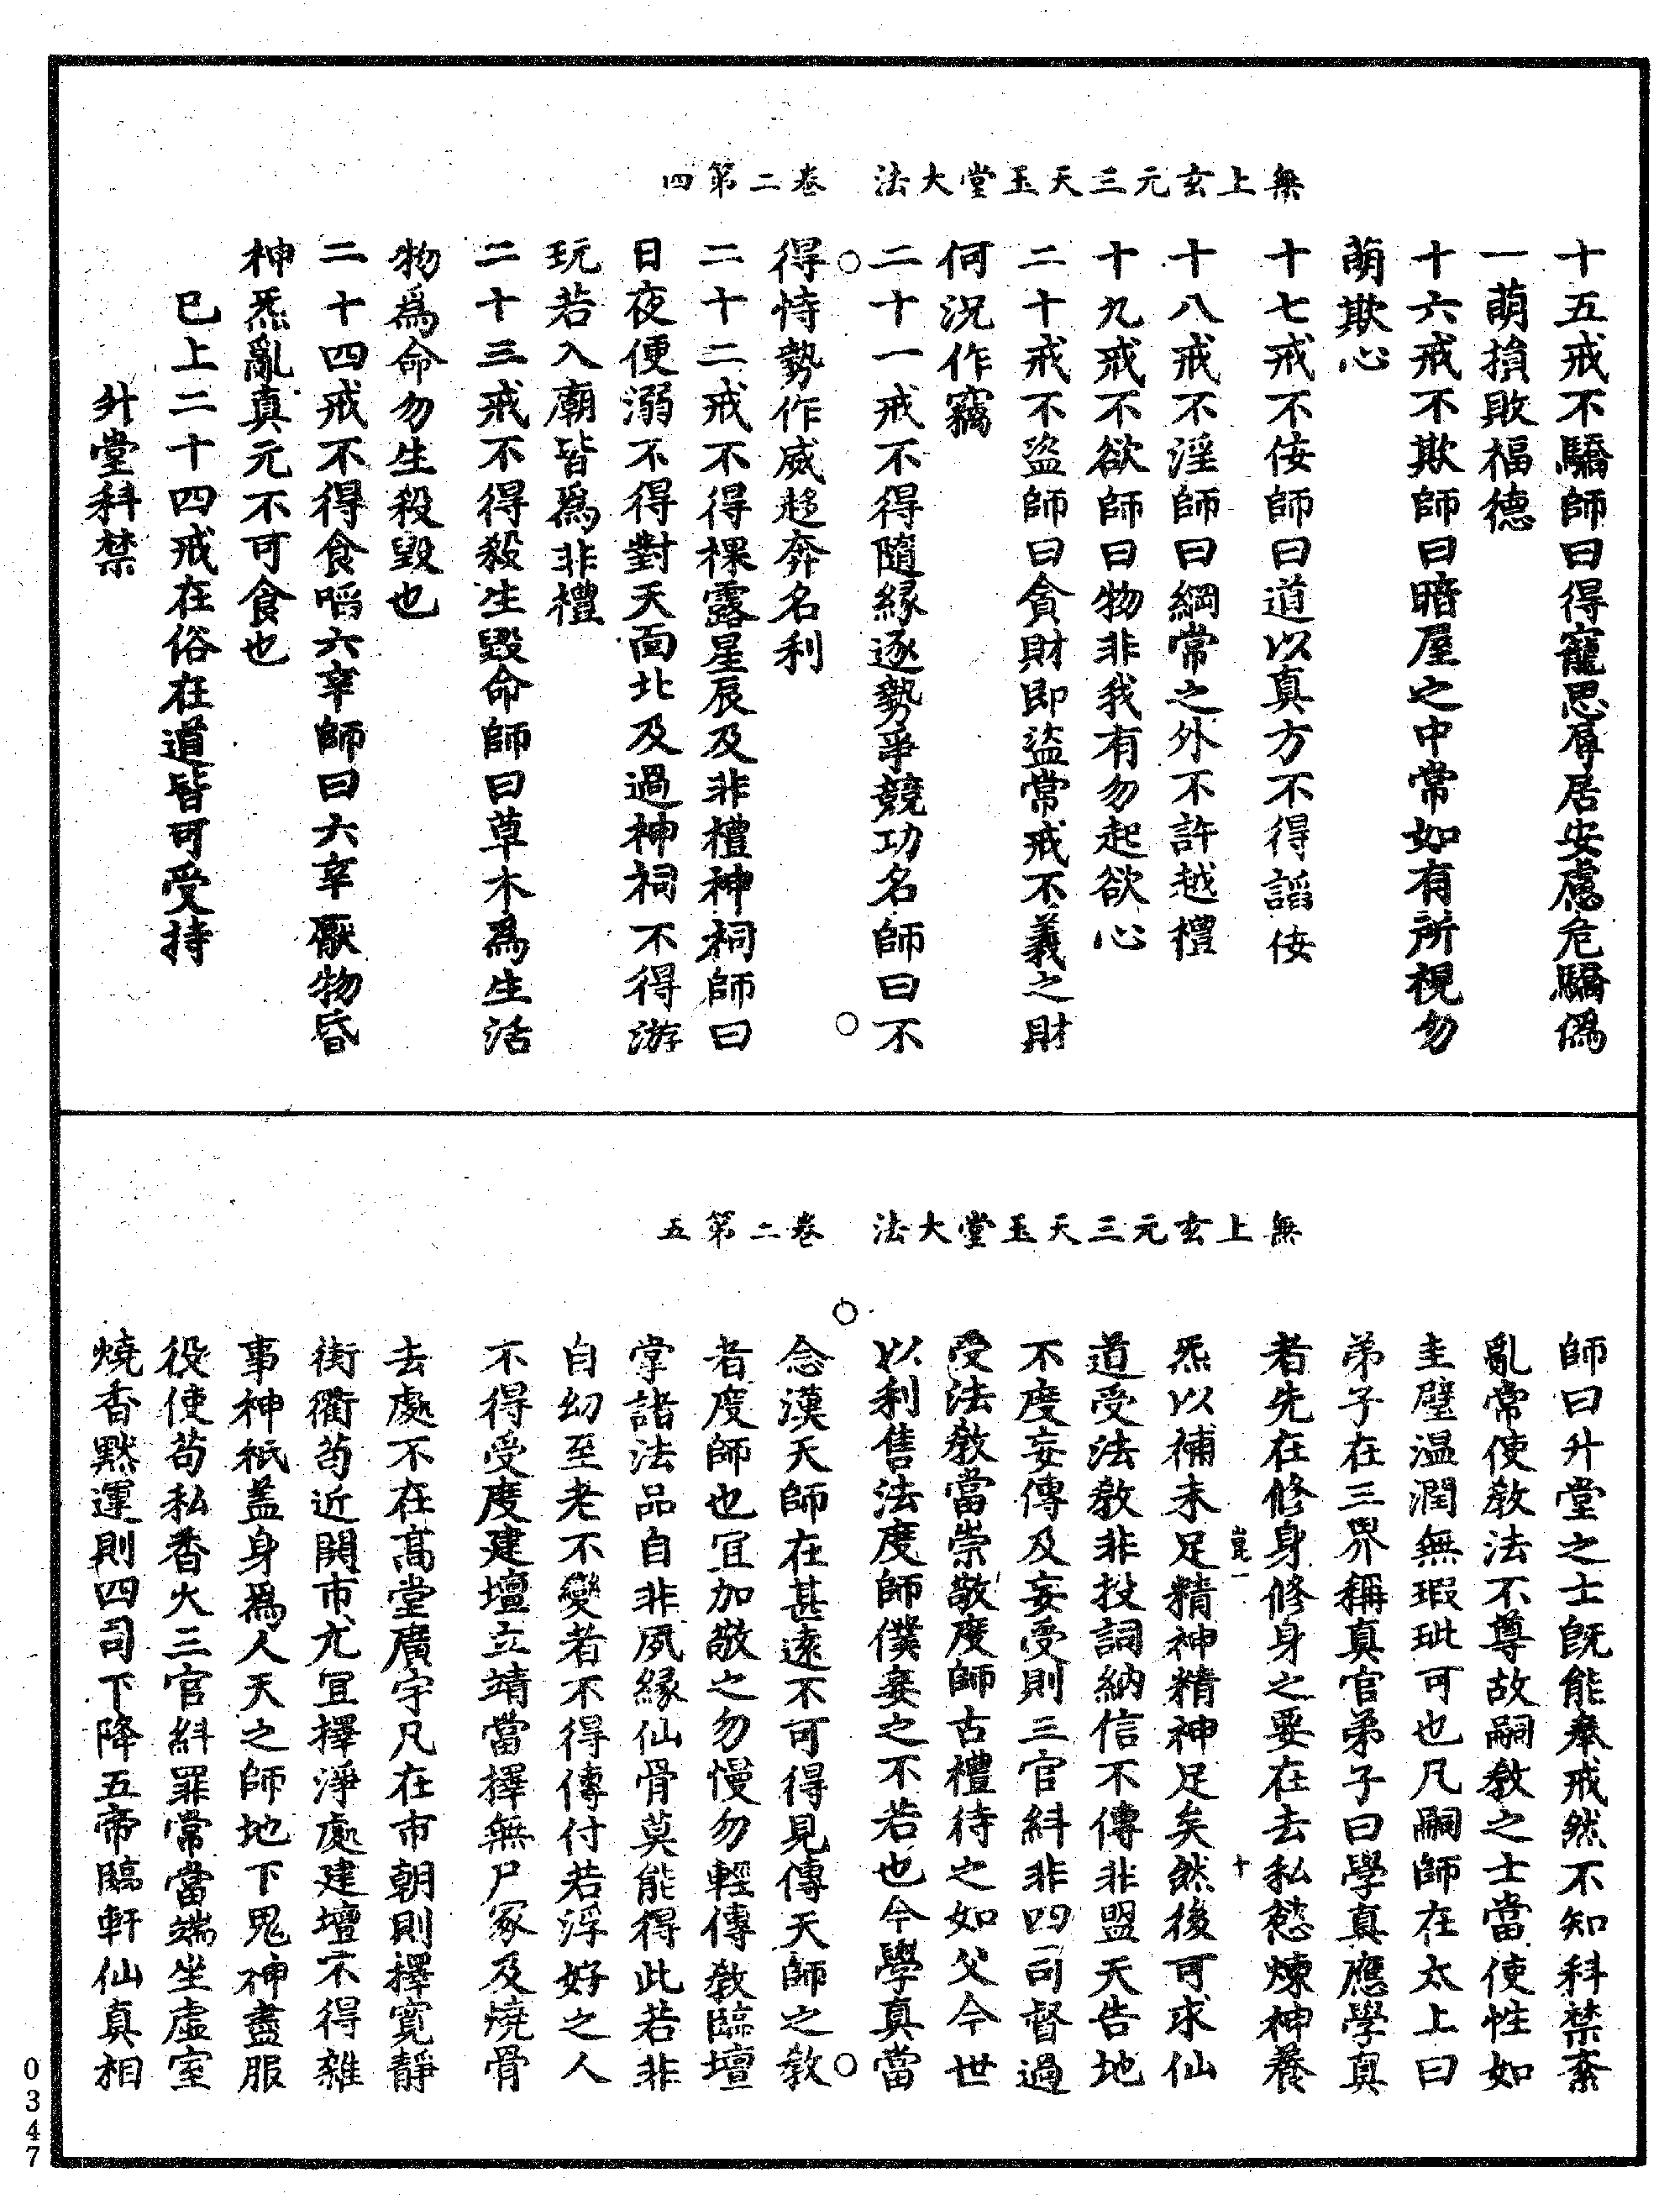 無上玄元三天玉堂大法　卷二第四
十五戒不驕師曰得寵思辱居安慮危驕僞
一萌損敗福德
十六戒不欺師曰暗屋之中常如有所視勿
萌欺心
十七戒不佞師曰道以真方不得謟佞
十八戒不淫師曰綱常之外不許越禮
十九戒不欲師曰物非我有勿起欲心
二十戒不盜師曰貪財即盜常戒不義之財
何況作竊
二十一戒不得隨緣逐勢爭競功名師曰不
得恃勢作威趍奔名利
二十二戒不得裸露星辰及非禮神祠師曰
日夜便溺不得對天面北及過神祠不得游
玩若入廟皆爲非禮
二十三戒不得殺生毀命師曰草木爲生活
物爲命勿生殺毀也
二十四戒不得食啗六辛師曰六辛厭物昏
神炁亂真元不可食也
已上二十四戒在俗在道皆可受持
升堂科禁
無上玄元三天玉堂大法　卷二第五
師曰升堂之士旣能奉戒然不知科禁紊
亂常使敎法不尊故嗣敎之士當使性如
圭璧溫潤無瑕玼可也凡嗣師在太上曰
弟子在三界稱真官弟子曰學真應學真
者先在修身修身之要在去私慾煉神養
炁以補未足精神精神足矣然後可求仙
道受法敎非投詞納信不傳非盟天告地
不度妄傳及妄受則三官糾非四司督過
受法敎當崇敬度師古禮待之如父今世
以利售法度師僕妾之不若也今學真當
念漢天師在甚遠不可得見傳天師之敎
者度師也宜加敬之勿慢勿輕傳敎臨壇
掌諸法品自非夙緣仙骨莫能得此若非
自幼至老不變者不得傳付若浮好之人
不得受度建壇立靖當擇無尸冢及燒骨
去處不在高堂廣宇凡在市朝則擇寬靜
街衢苟近鬧市尤宜擇淨處建壇不得雜
事神祇蓋身爲人天之師地下鬼神盡服
役使苟私香火三官糾罪常當端坐虛室
燒香默運則四司下降五帝臨軒仙真相
崑一
十
0347